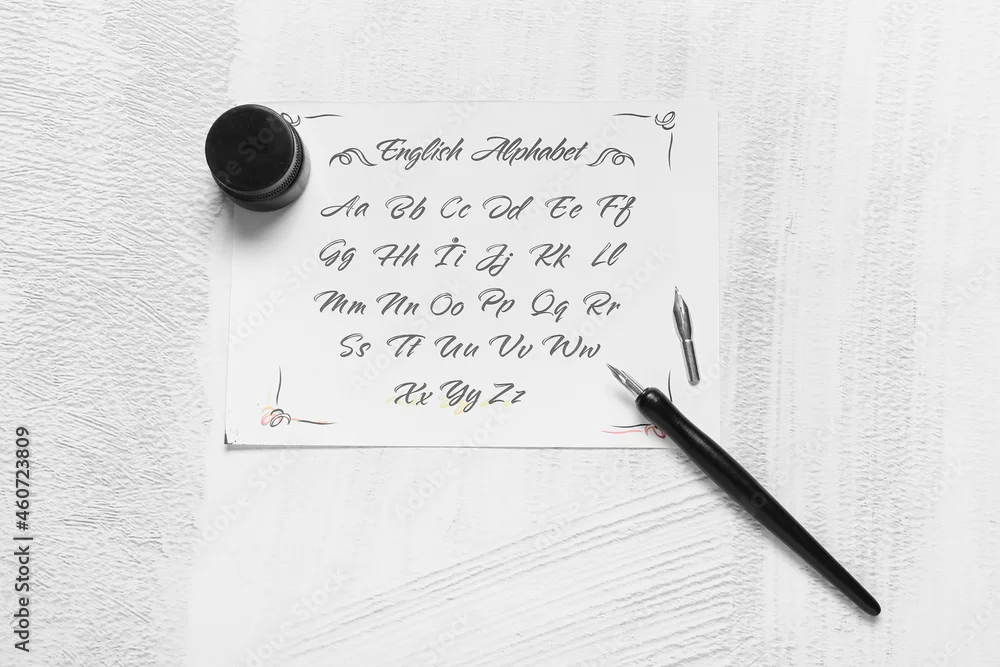 English Alphabet
Aa Bb Cc Dd Ee Ff
Gg Hh İi Jj Kk Ll
Mm Nn Oo Pp Qq Rr
Ss Tt Uu Vv Ww
Xx Yy Zz
Adobe Stock | #460723809